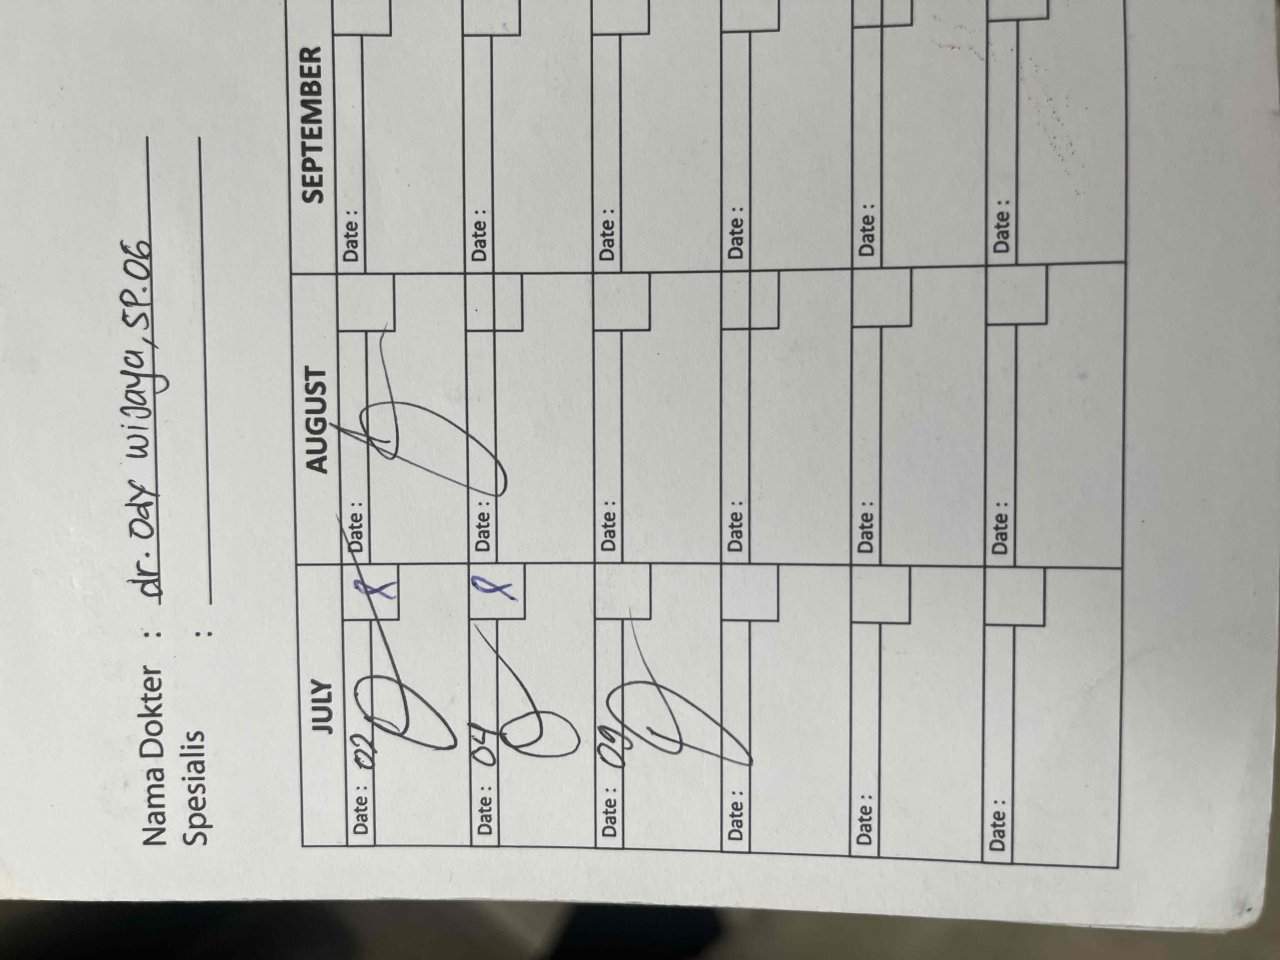 Nama Dokter : dr. Ody Wijaya, SP.OG
Spesialis :
JULY AUGUST SEPTEMBER
Date : 02 Date : Date :
Date : 04 Date : Date :
Date : 09 Date : Date :
Date : Date : Date :
Date : Date : Date :
Date : Date : Date :